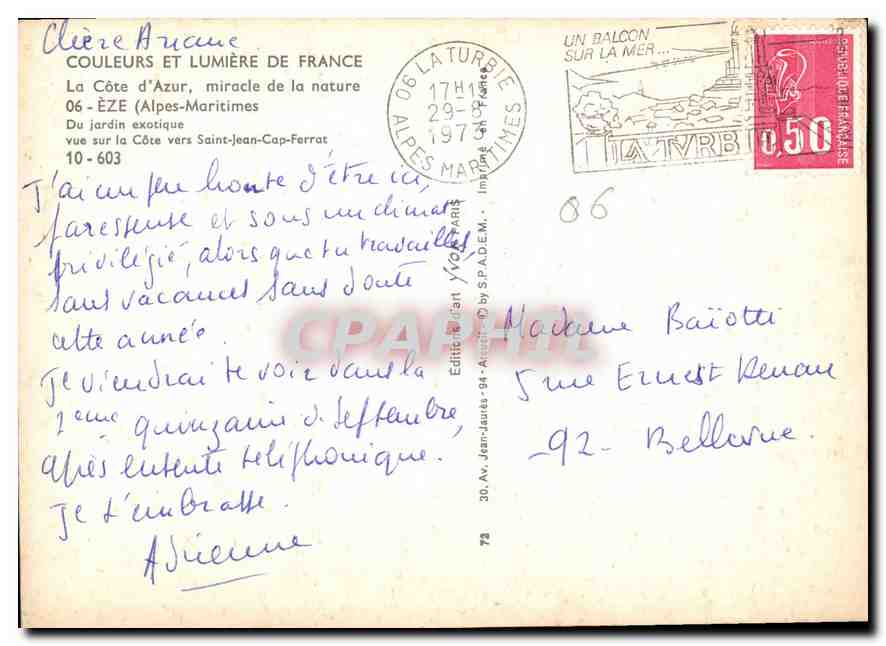 Chère Ariane
COULEURS ET LUMIÈRE DE FRANCE
La Côte d'Azur, miracle de la nature
06 - ÈZE (Alpes-Maritimes
Du jardin exotique
vue sur la Côte vers Saint-Jean-Cap-Ferrat
10 - 603
J'ai un peu honte d'être ici,
paresseuse et sous un climat
privilégié, alors que tu travailles,
sans vacances sans doute
cette année.
Je viendrai te voir dans la
2ème quinzaine de Septembre,
après entente téléphonique.
Je t'embrasse.
Adrienne
06 LA TURBIE
17H
29-8
1973
ALPES MARITIMES
UN BALCON
SUR LA MER...
LA TVRBIE
0,50
REPUBLIQUE FRANÇAISE
06
Editions d'art YVON PARIS
72 30, Av. Jean-Jaurès - 94 - Arcueil - © by S.P.A.D.E.M. - Imprimé en France
CPAPHIL
Madame Baïotti
5 rue Ernest Renan
-92- Bellevue.